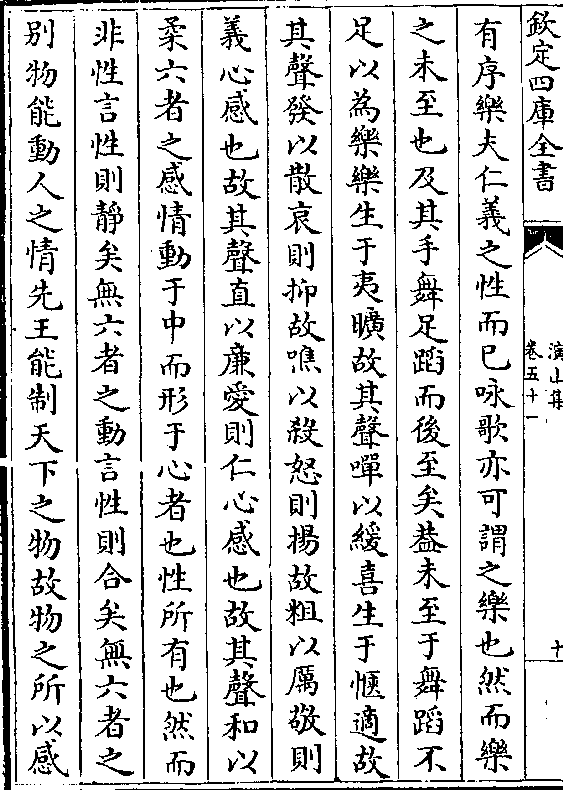 欽定四庫全書
演山集
卷五十一
十
有序樂夫仁義之性而已咏歌亦可謂之樂也然而樂
之未至也及其手舞足蹈而後至矣葢未至于舞蹈不
足以為樂樂生于夷曠故其聲嘽以緩喜生于愜適故
其聲發以散哀則抑故噍以殺怒則揚故粗以厲敬則
義心感也故其聲直以廉愛則仁心感也故其聲和以
柔六者之感情動于中而形于心者也性所有也然而
非性言性則靜矣無六者之動言性則合矣無六者之
別物能動人之情先王能制天下之物故物之所以感